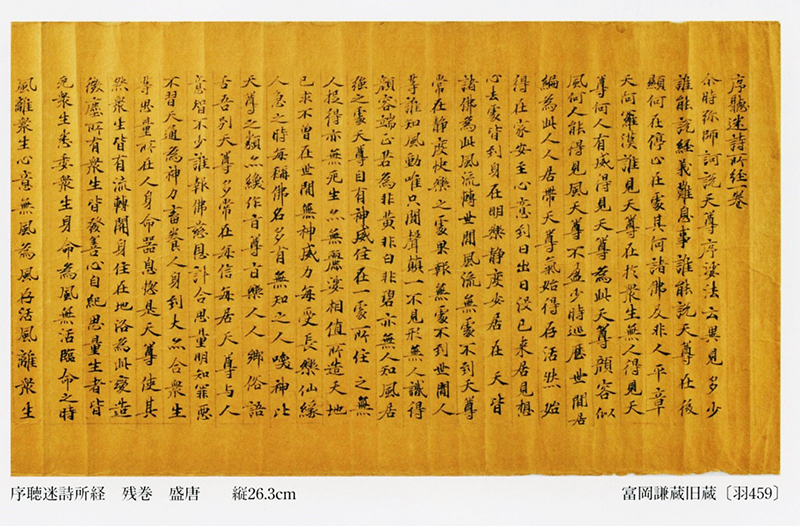 序聽迷詩所經一卷
尒時弥師訶說天尊序娑法云異見多少
誰能說經義難息事誰能說天尊在後
顯何在停止在處其何諸佛及非人平章
天阿羅漢誰見天尊在於衆生無人得見天
尊何人有威得見天尊為此天尊顔容似
風何人能得見風天尊不盈少時巡歷世間居
編為此人人居帶天尊氣始得存活然始
得在家安至心意到日出日沒已來居見想
心去處皆到身在明樂靜度安居在天皆
諸佛為此風流轉世間風流無處不到天尊
常在靜度快樂之處果報無處不到世間人
等誰知風動唯只聞聲顛一不見形無人識得
顔容端正若為非黃非白非碧亦無人知風居
強之處天尊自有神威住在一處所住之無
人捉得亦無死生亦無麗娑相值所造天地
已求不曾在世間無神威力每受長樂仙緣
人急之時每稱佛名多有無知之人喚神比
天尊之類亦緣作旨尊旨樂人人鄉俗語
舌吾別天尊多常在每信每居天尊与人
意智不少誰報佛慈恩計合思量明知罪惡
不習天通為神力畜養人身到大亦合衆生
等思量所在人身命器息總是天尊使其
然衆生皆有流轉關身住在地洛為此變造
微塵所有衆生皆發善心自紀思量生者皆
死衆生悉委衆生身命為風無活臨命之時
風離衆生心意無風為風存活風離衆生
序聴迷詩所経　残巻　盛唐　縦26.3cm
富岡謙蔵旧蔵〔羽459〕